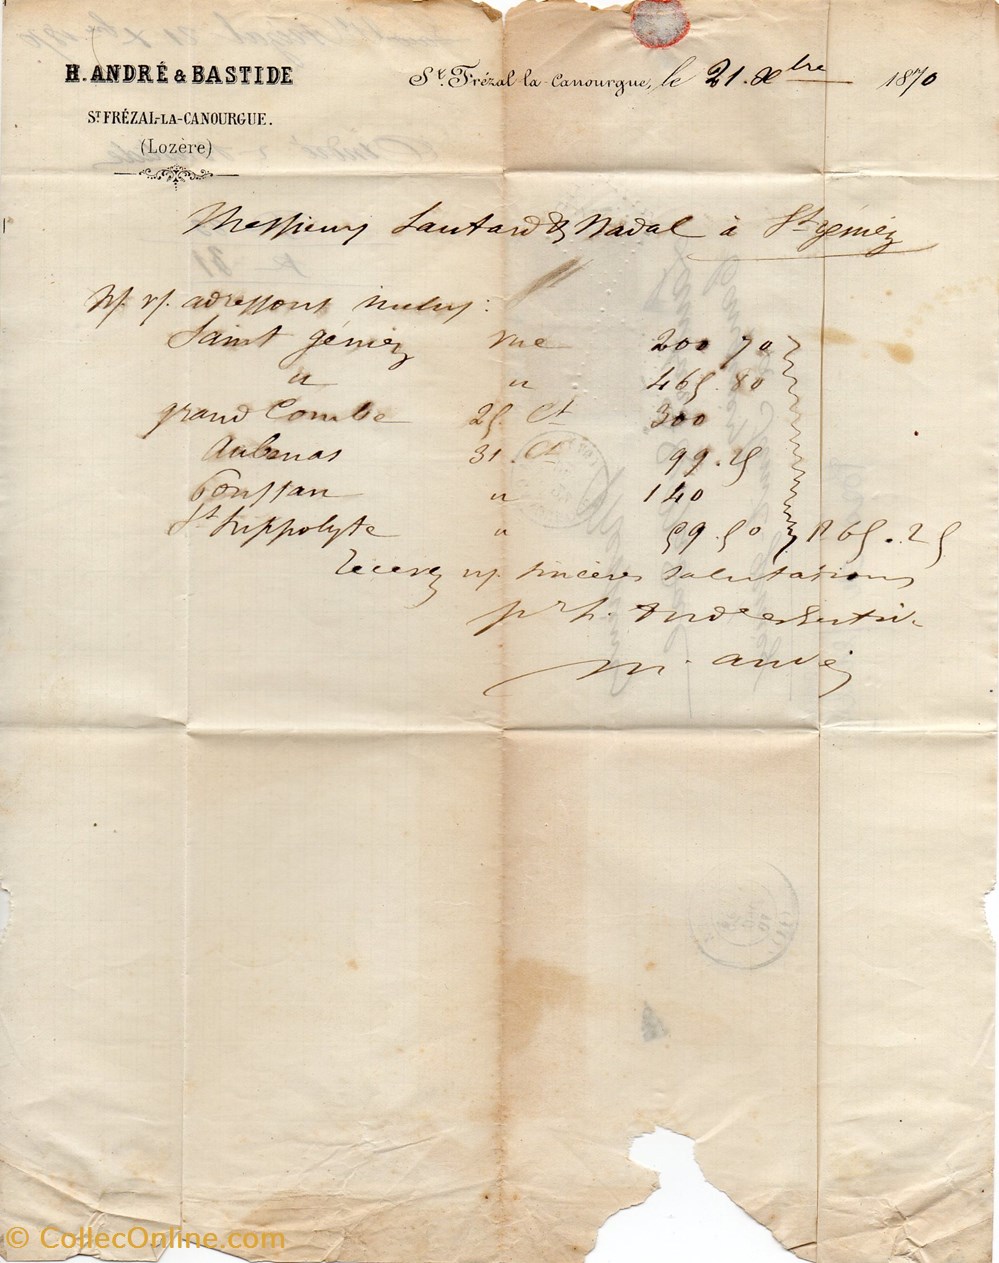 H. ANDRÉ & BASTIDE
ST FRÉZAL-LA-CANOURGUE.
(Lozère)
St. Frézal la Canourgue, le 21. Xbre 1870
Messieurs Lautard & Nadal à St géniez
N/. v/. adressons inclus :
Saint géniez vue 200 70
" " 465. 80
grand Combe 25. Ct 300
Aubenas 31. Ct 99. 25
Poussan " 140
St hippolyte " 59. 50 1265. 25
Recevez n/. sincères salutations
pr h. André & Bastide
m. andré
© CollecOnline.com